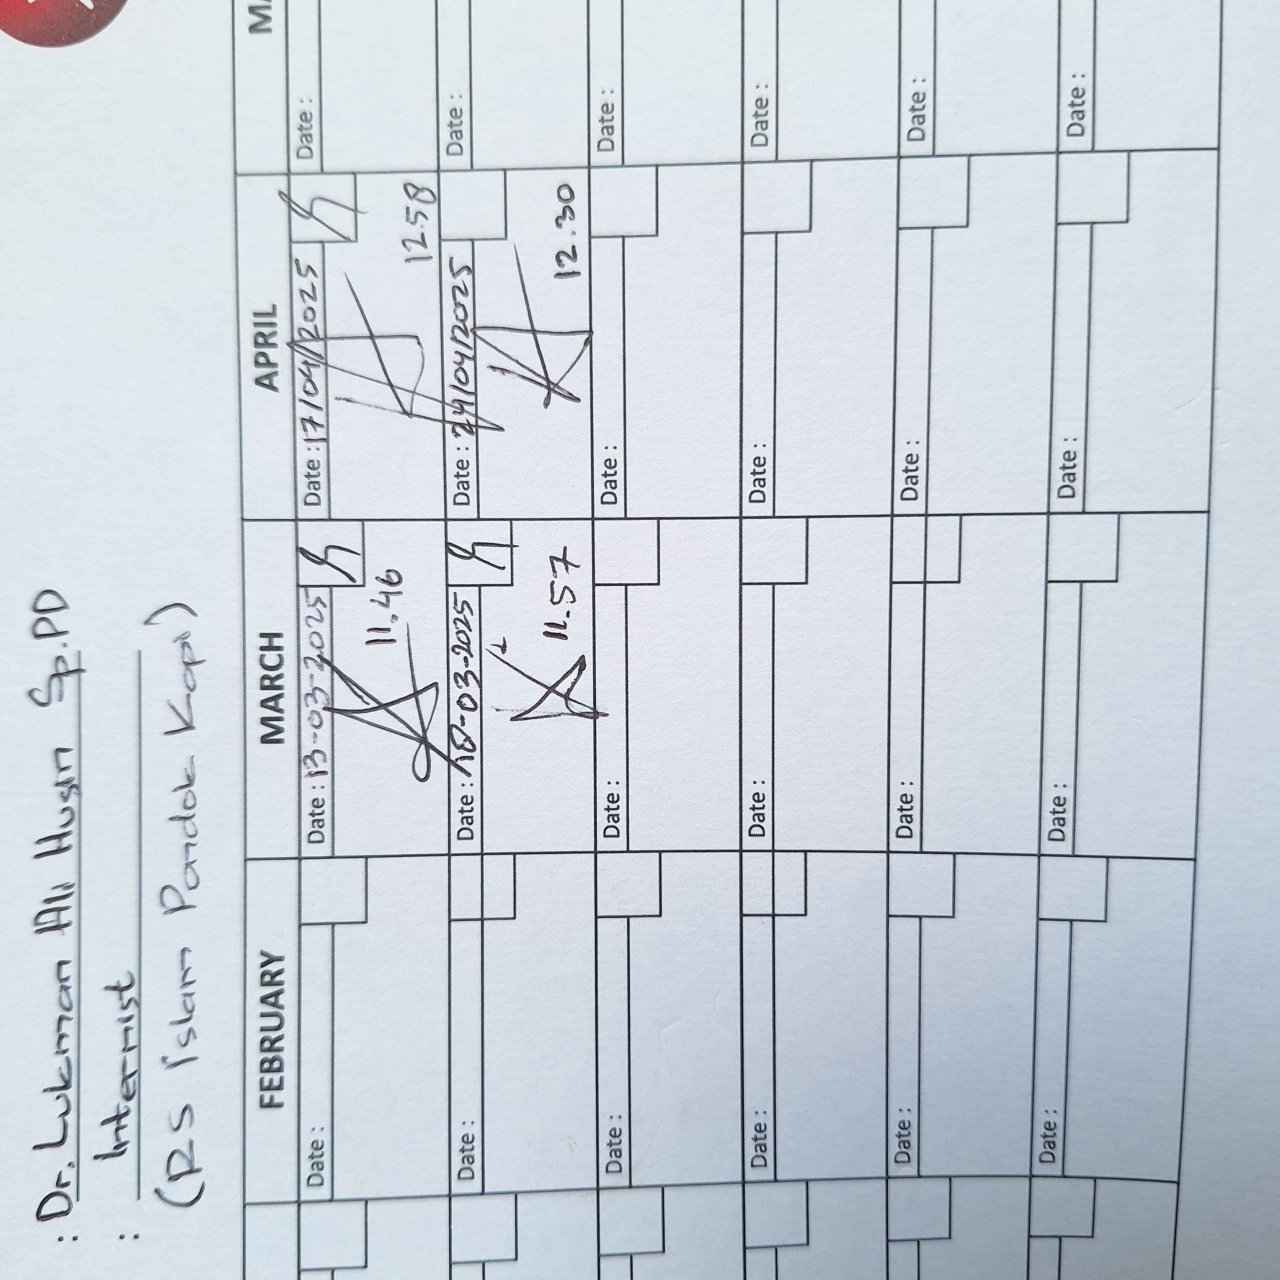 : Dr. Lukman Ali Husin Sp.PD
: Internist
(RS Islam Pondok Kopi)
FEBRUARY MARCH APRIL
Date : Date : 13-03-2025 Date : 17/04/2025 Date :
11.46 12.58
Date : Date : 18-03-2025 Date : 24/04/2025 Date :
11.57 12.30
Date : Date : Date : Date :
Date : Date : Date : Date :
Date : Date : Date : Date :
Date : Date : Date : Date :